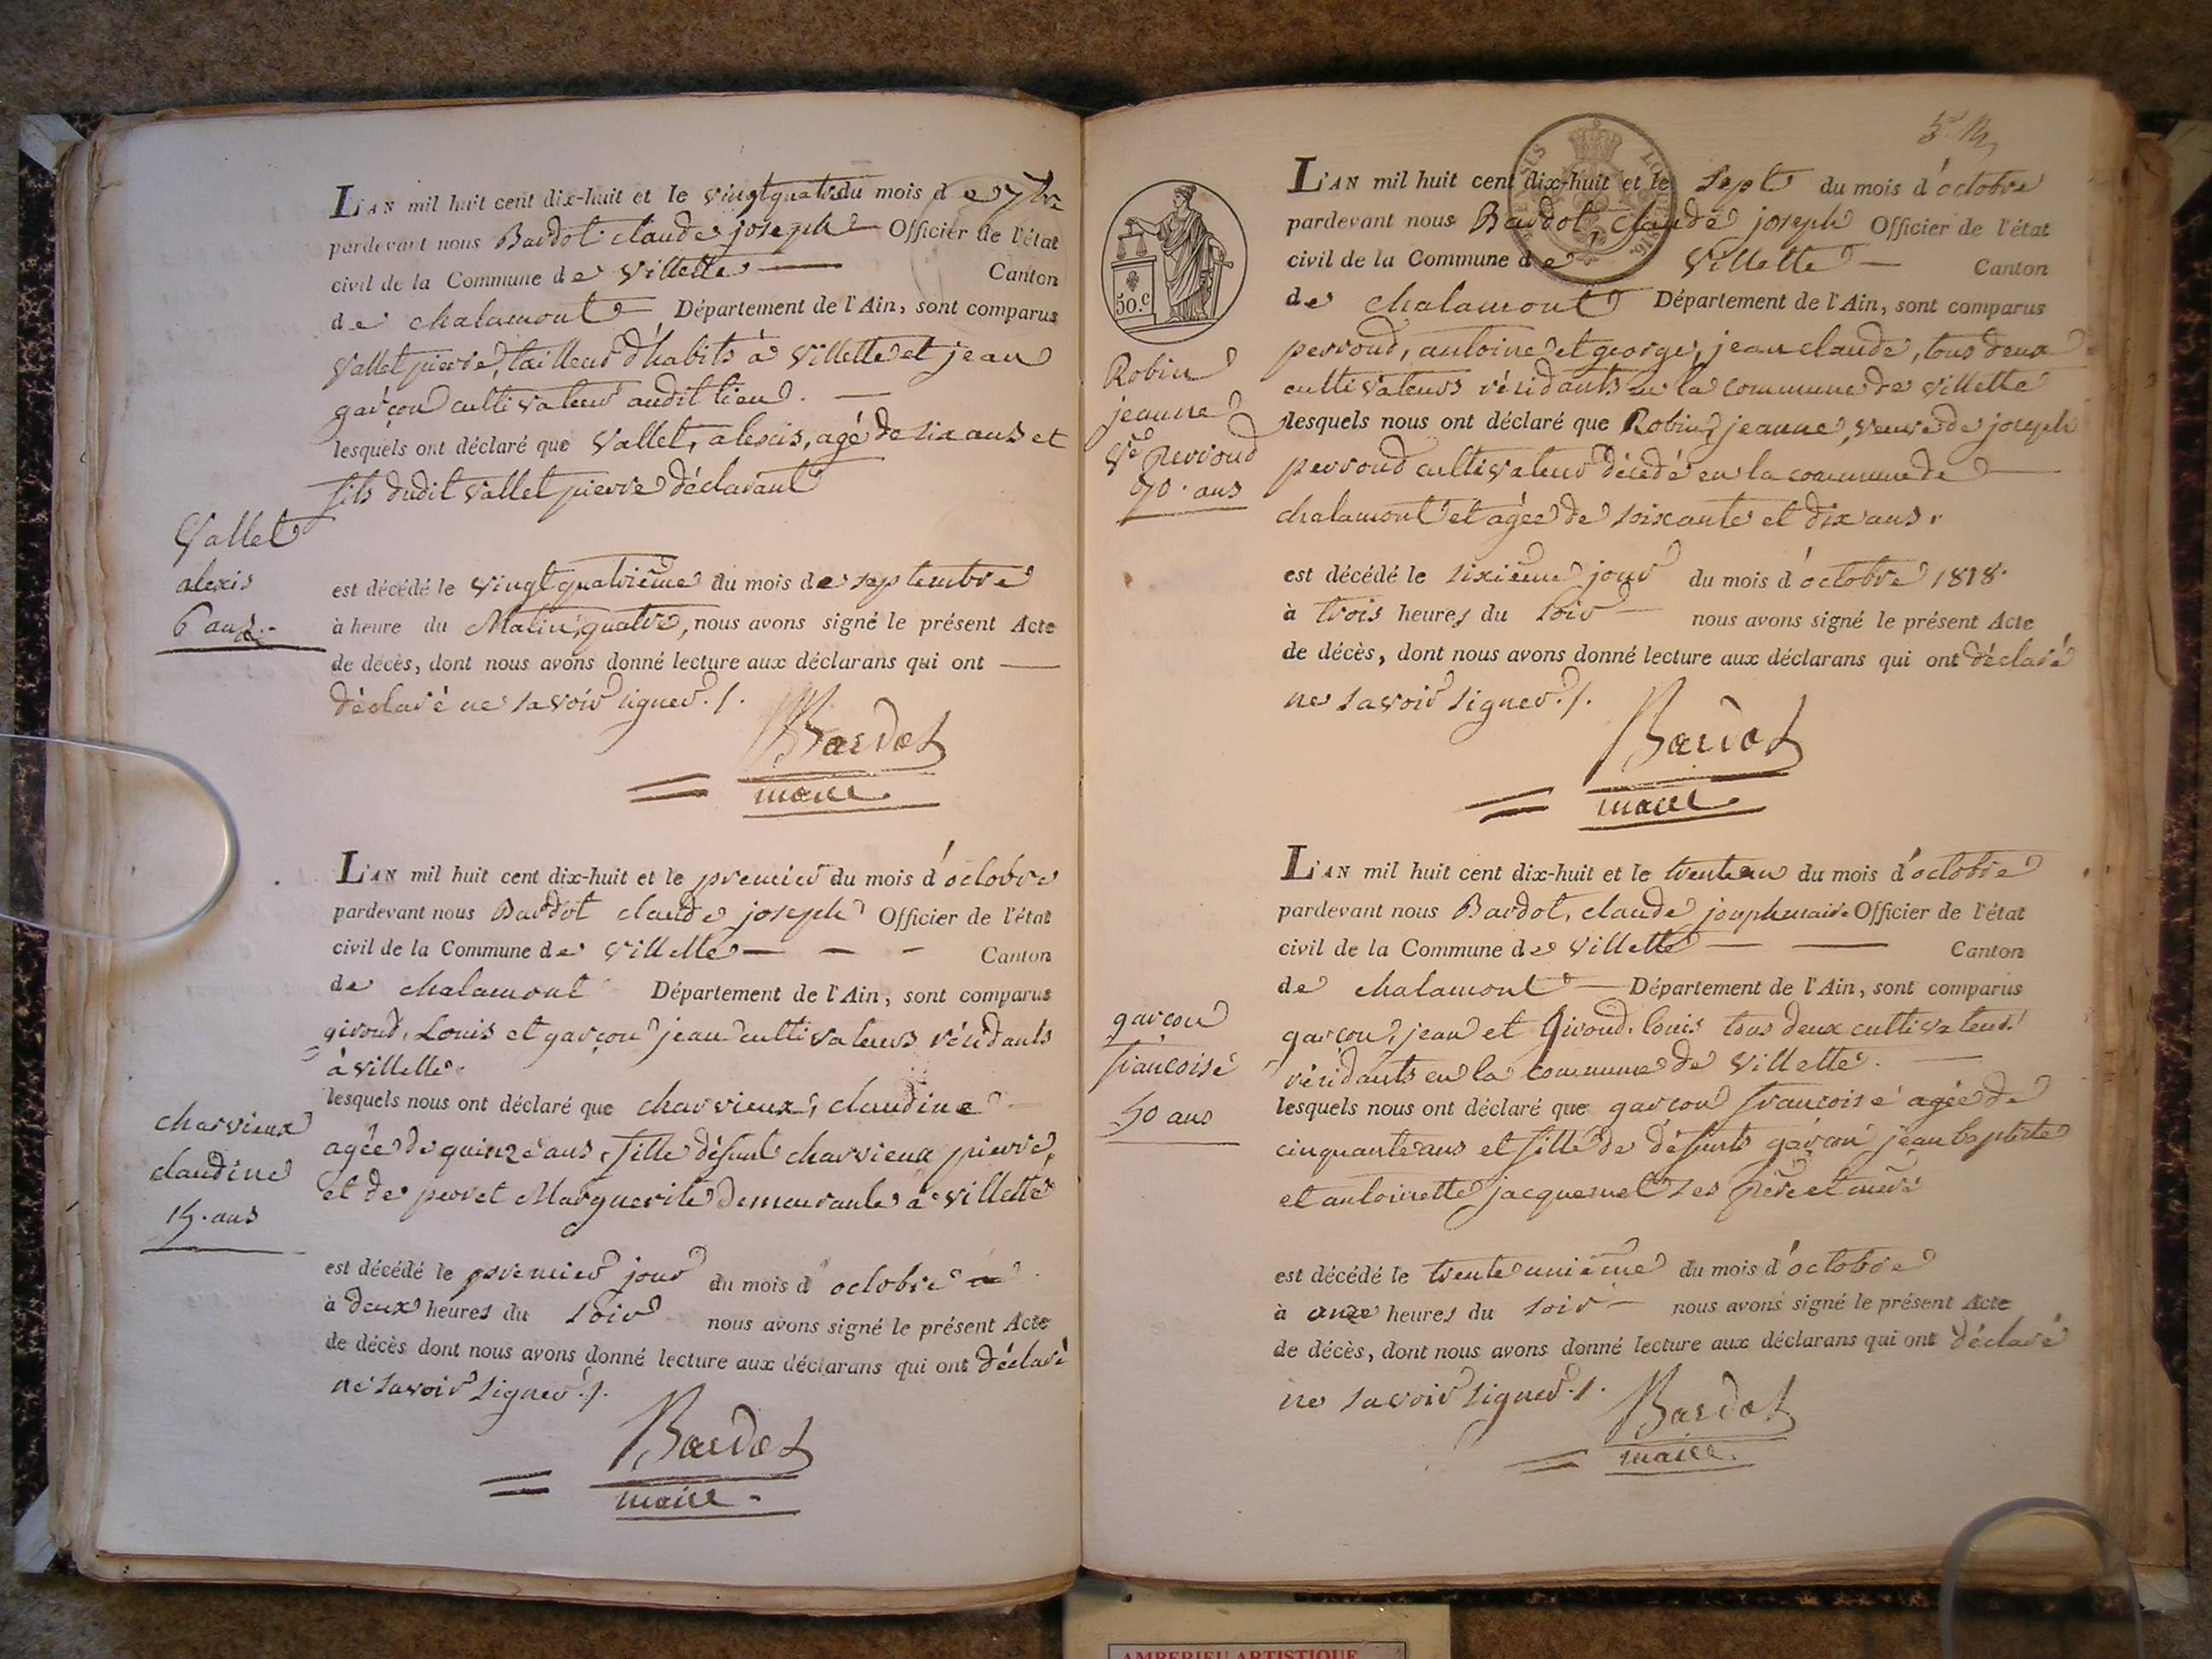 L'AN mil huit cent dix-huit et le vingtquatre du mois de 7bre
pardevant nous Bardot claude joseph Officier de l'état
civil de la Commune de Villette Canton
de chalamont Département de l'Ain, sont comparus
Vallet pierre, tailleur d'habits à Villette et jean
garçon cultivateur audit lieu.
lesquels ont déclaré que Vallet, alexis, agé de six ans et
fils dudit Vallet pierre déclarant
Vallet
alexis
6 ans.
est décédé le vingtquatrième du mois de septembre
à heure du Matin, quatre, nous avons signé le présent Acte
de décès, dont nous avons donné lecture aux déclarans qui ont
déclaré ne savoir signer./.
Bardot
maire.
L'AN mil huit cent dix-huit et le premier du mois d'octobre
pardevant nous Bardot claude joseph Officier de l'état
civil de la Commune de Villette Canton
de chalamont Département de l'Ain, sont comparus
giroud, Louis et garçon jean cultivateurs résidants
à Villette.
lesquels nous ont déclaré que charvieux, claudine
agée de quinze ans, fille défunt charvieux pierre,
et de perret Marguerite demeurante à Villette
charvieux
claudine
15. ans
est décédé le premier jour du mois d'octobre
à deux heures du soir nous avons signé le présent Acte
de décès dont nous avons donné lecture aux déclarans qui ont déclaré
ne savoir signer./.
Bardot
maire.
L'AN mil huit cent dix-huit et le sept du mois d'octobre
pardevant nous Bardot, claude joseph Officier de l'état
civil de la Commune de Villette Canton
de chalamont Département de l'Ain, sont comparus
50.c
perroud, antoine et george, jean claude, tous deux
cultivateurs résidants en la commune de Villette
lesquels nous ont déclaré que Robin, jeanne, veuve de joseph
perroud cultivateur décédé en la commune de
chalamont et agée de soixante et dix ans.
Robin
jeanne
Ve perroud
70. ans
est décédé le sixième jour du mois d'octobre 1818.
à trois heures du soir nous avons signé le présent Acte
de décès, dont nous avons donné lecture aux déclarans qui ont déclaré
ne savoir signer./.
Bardot
maire.
L'AN mil huit cent dix-huit et le trente un du mois d'octobre
pardevant nous Bardot, claude joseph maire Officier de l'état
civil de la Commune de Villette Canton
de chalamont Département de l'Ain, sont comparus
garçon, jean et Giroud, louis tous deux cultivateurs
résidants en la commune de Villette.
lesquels nous ont déclaré que garçon françoise agée de
cinquante ans et fille de défunts garçon jean baptiste
et antoinette jacquemet ses père et mère
garçon
françoise
50 ans
est décédé le trente unième du mois d'octobre
à onze heures du soir nous avons signé le présent Acte
de décès, dont nous avons donné lecture aux déclarans qui ont déclaré
ne savoir signer./.
Bardot
maire.
AMBERIEU ARTISTIQUE